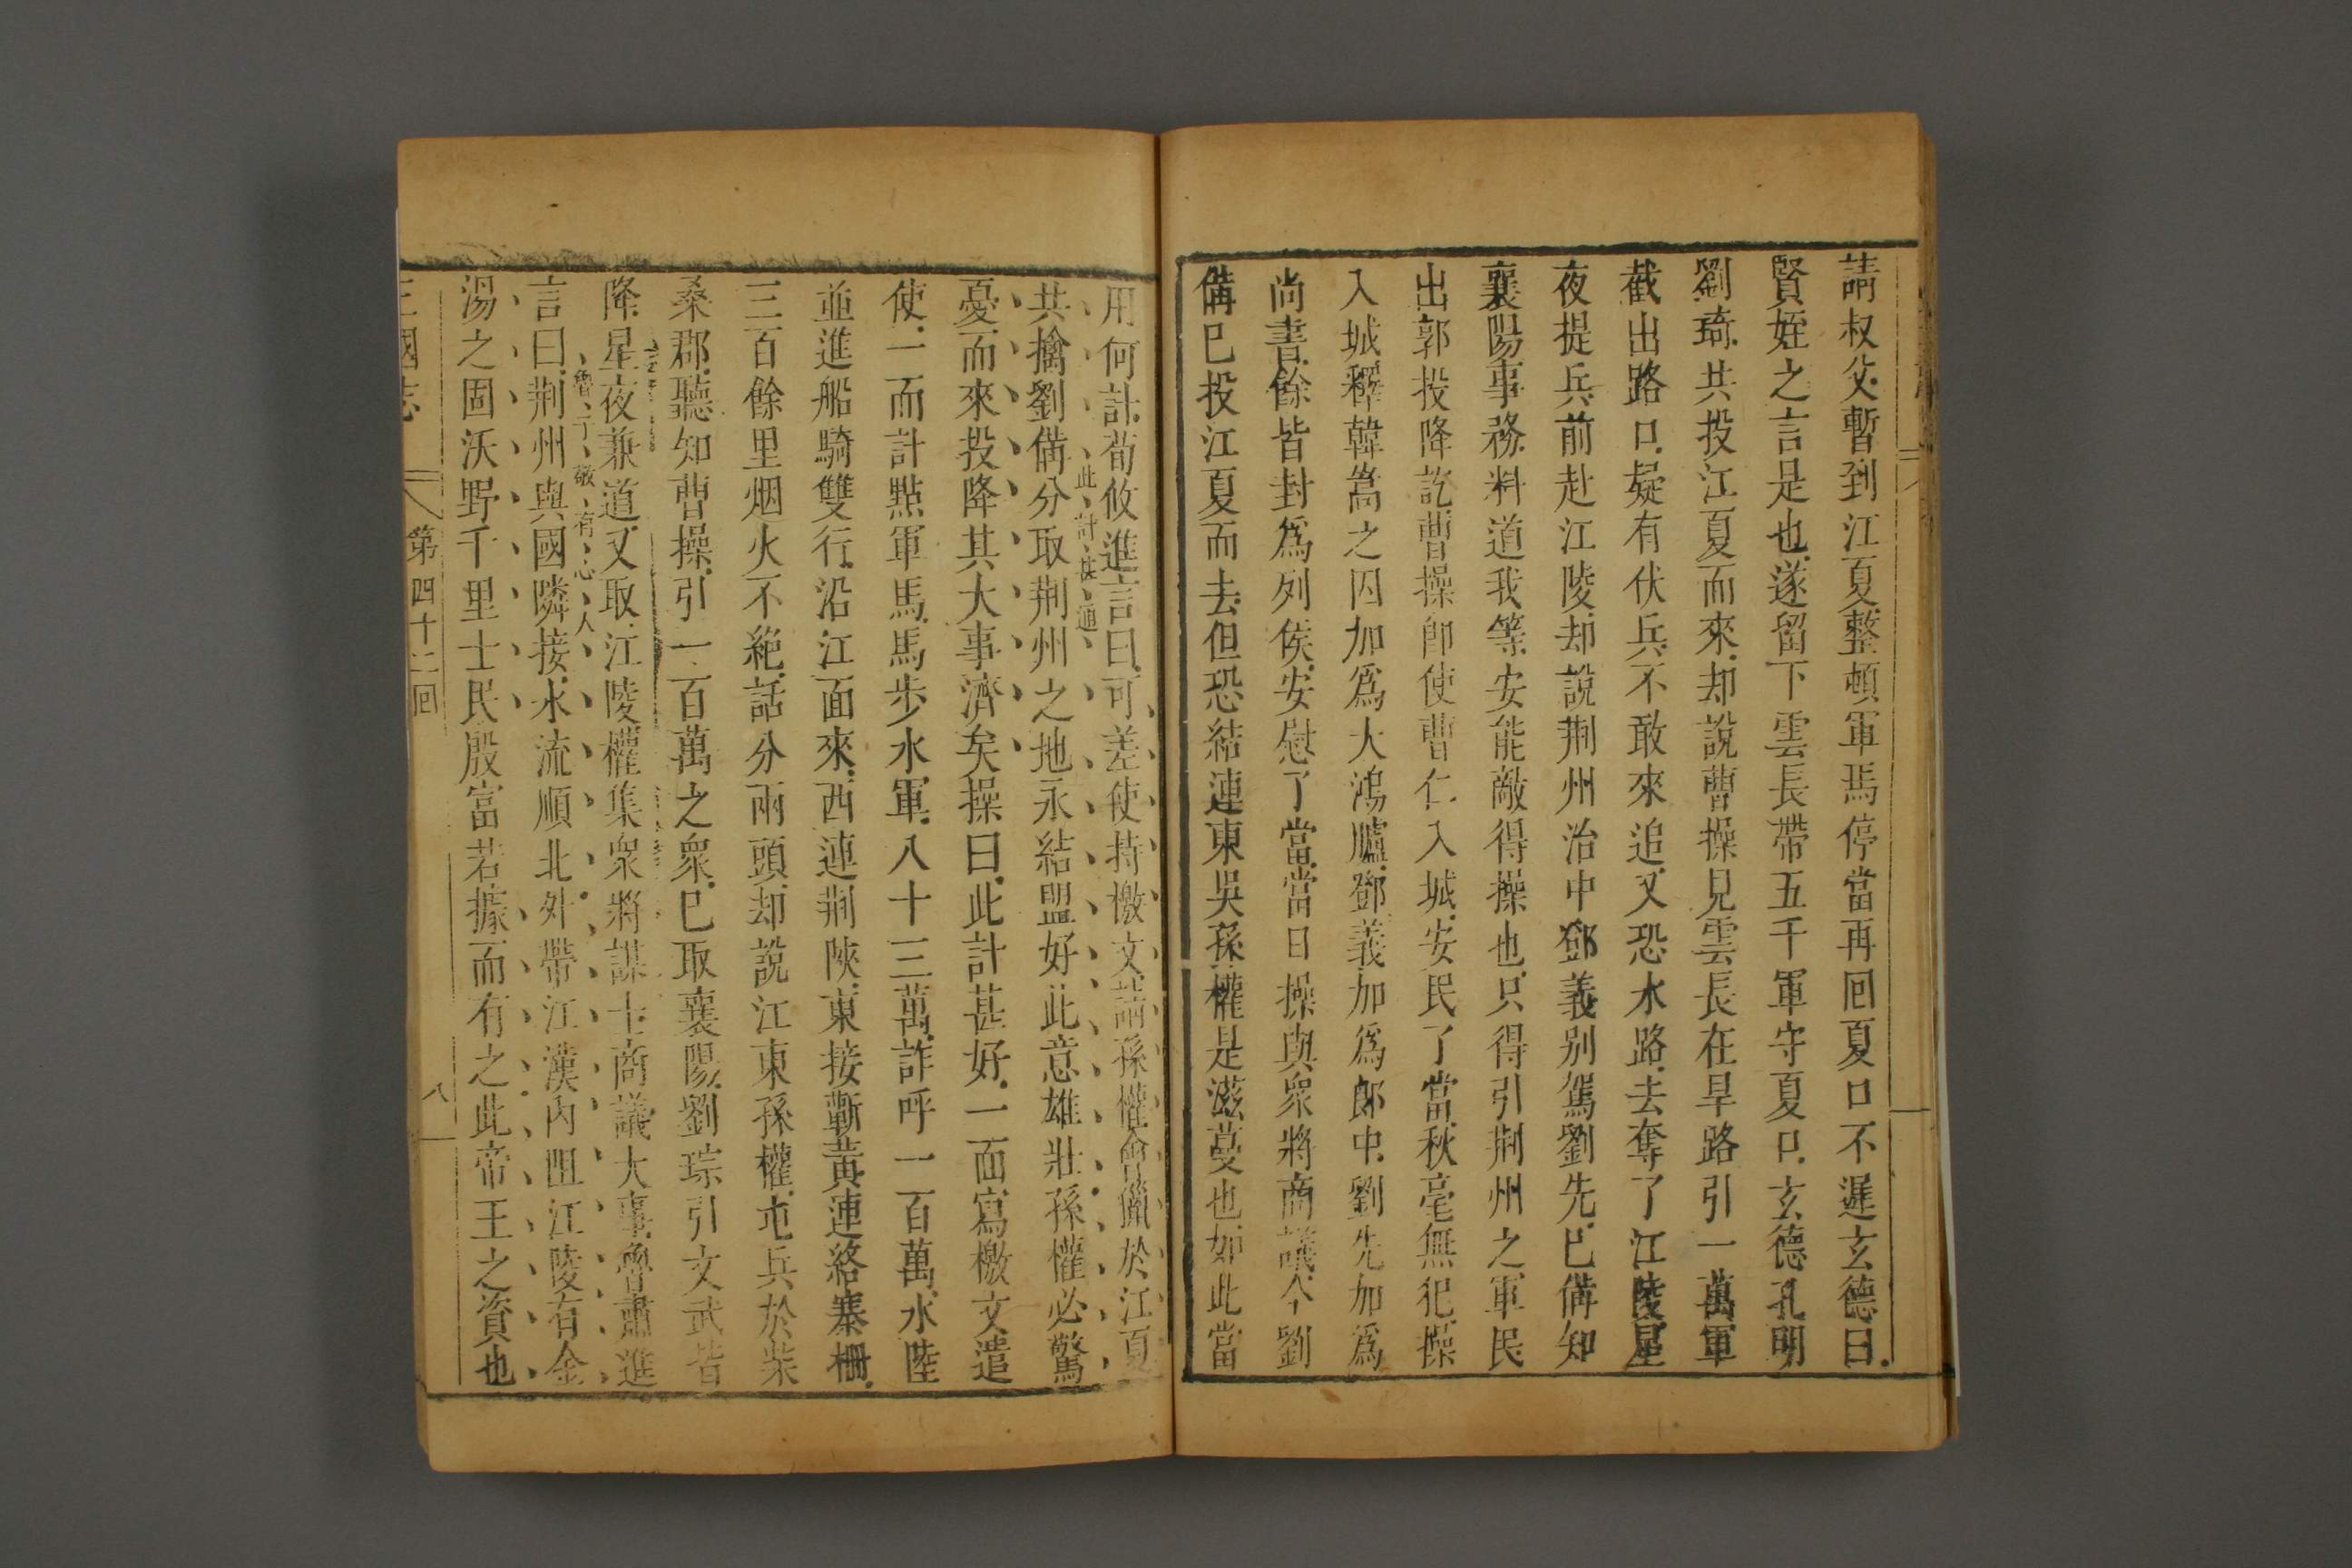 請叔父暫到江夏整頓軍馬停當再回夏口不遲玄德曰
賢姪之言是也遂留下雲長帶五千軍守夏口玄德孔明
劉琦共投江夏而來却說曹操見雲長在旱路引一萬軍
截出路口疑有伏兵不敢來追又恐水路去奪了江陵星
夜提兵前赴江陵却說荊州治中鄧義别駕劉先已備知
襄陽事務料道我等安能敵得操也只得引荊州之軍民
出郭投降訖曹操即使曹仁入城安民了當秋毫無犯操
入城釋韓嵩之囚加爲大鴻臚鄧義加爲郎中劉先加爲
尚書餘皆封爲列侯安慰了當當日操與衆將商議今劉
備已投江夏而去但恐結連東吳孫權是滋蔓也如此當
用何計荀攸進言曰可差使持檄文請孫權會獵於江夏
此計甚通
共擒劉備分取荊州之地永結盟好此意雄壯孫權必驚
憂而來投降其大事濟矣操曰此計甚好一面寫檄文遣
使一面計點軍馬馬步水軍八十三萬詐呼一百萬水陸
並進船騎雙行沿江面來西連荊陝東接蘄黃連絡寨柵
三百餘里烟火不絕話分兩頭却說江東孫權屯兵於柴
桑郡聽知曹操引一百萬之衆已取襄陽劉琮引文武皆
降星夜兼道又取江陵權集衆將謀士商議大事魯肅進
魯子敬有心人
言曰荊州與國隣接水流順北外帶江漢內阻江陵有金
湯之固沃野千里士民殷富若據而有之此帝王之資也
三國志 第四十二回 八